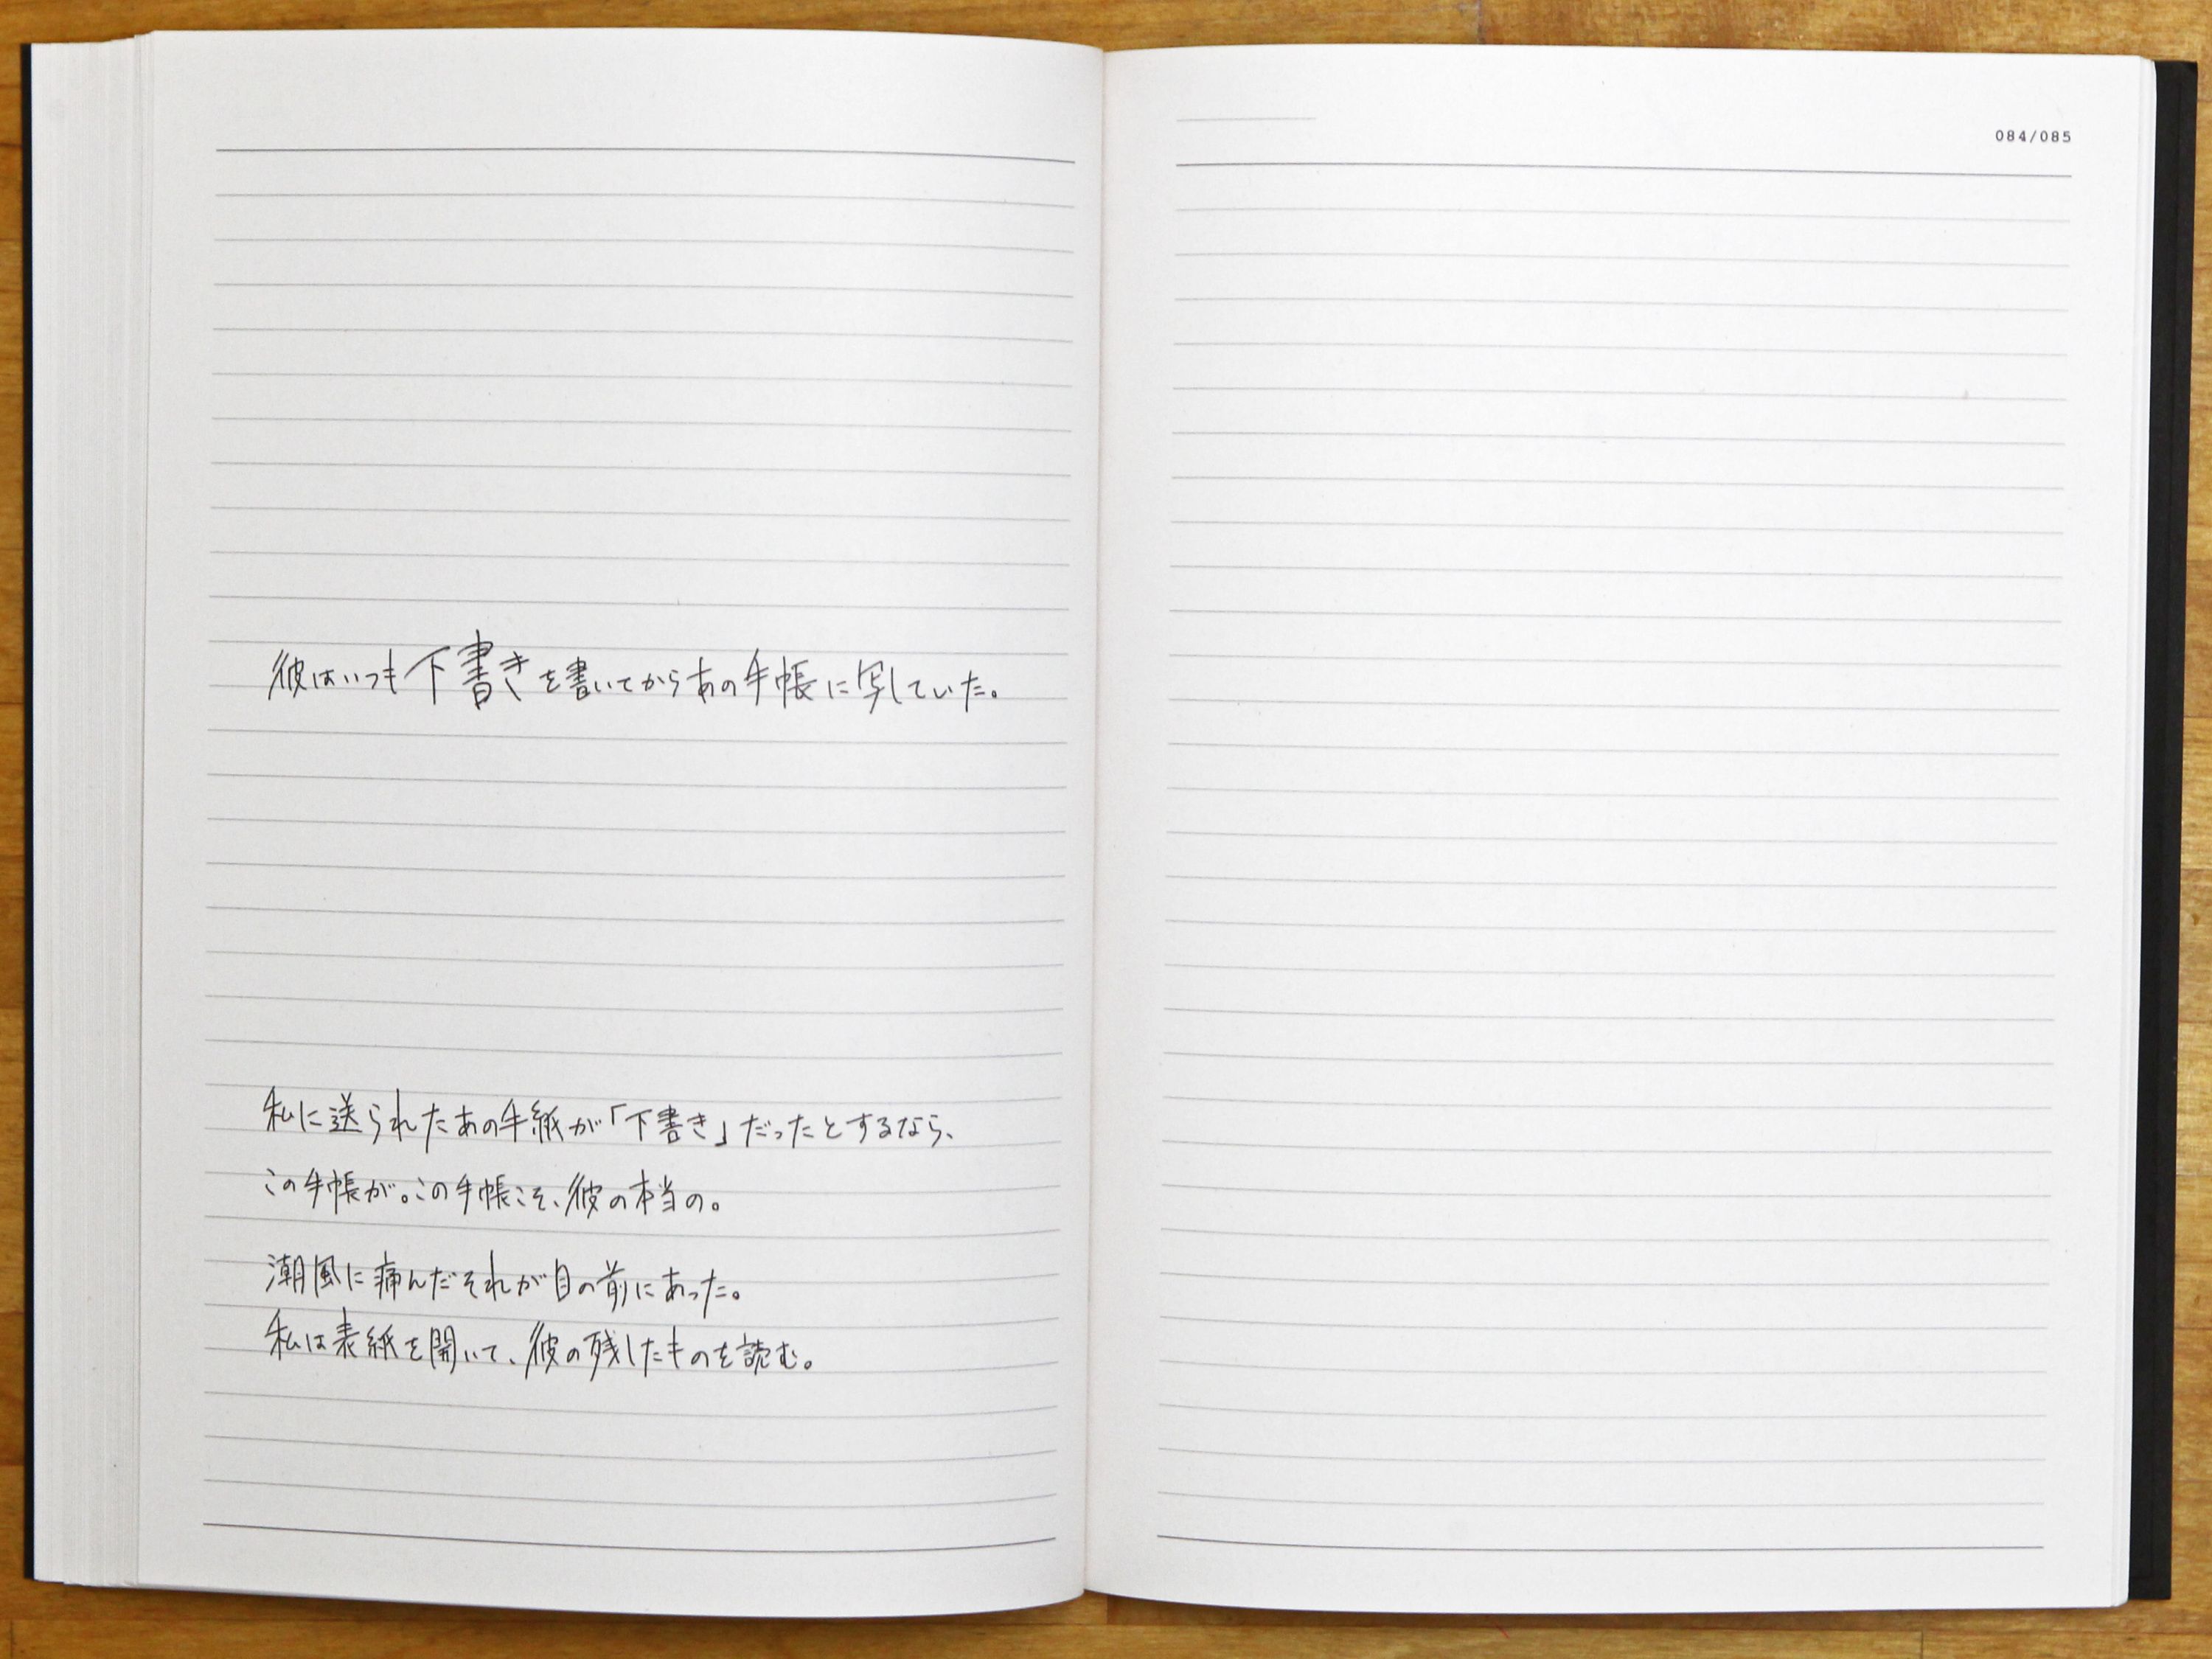 彼はいつも下書きを書いてからあの手帳に写していた。
私に送られたあの手紙が「下書き」だったとするなら、
この手帳が。この手帳こそ、彼の本当の。
潮風に痛んだそれが目の前にあった。
私は表紙を開いて、彼の残したものを読む。
084/085